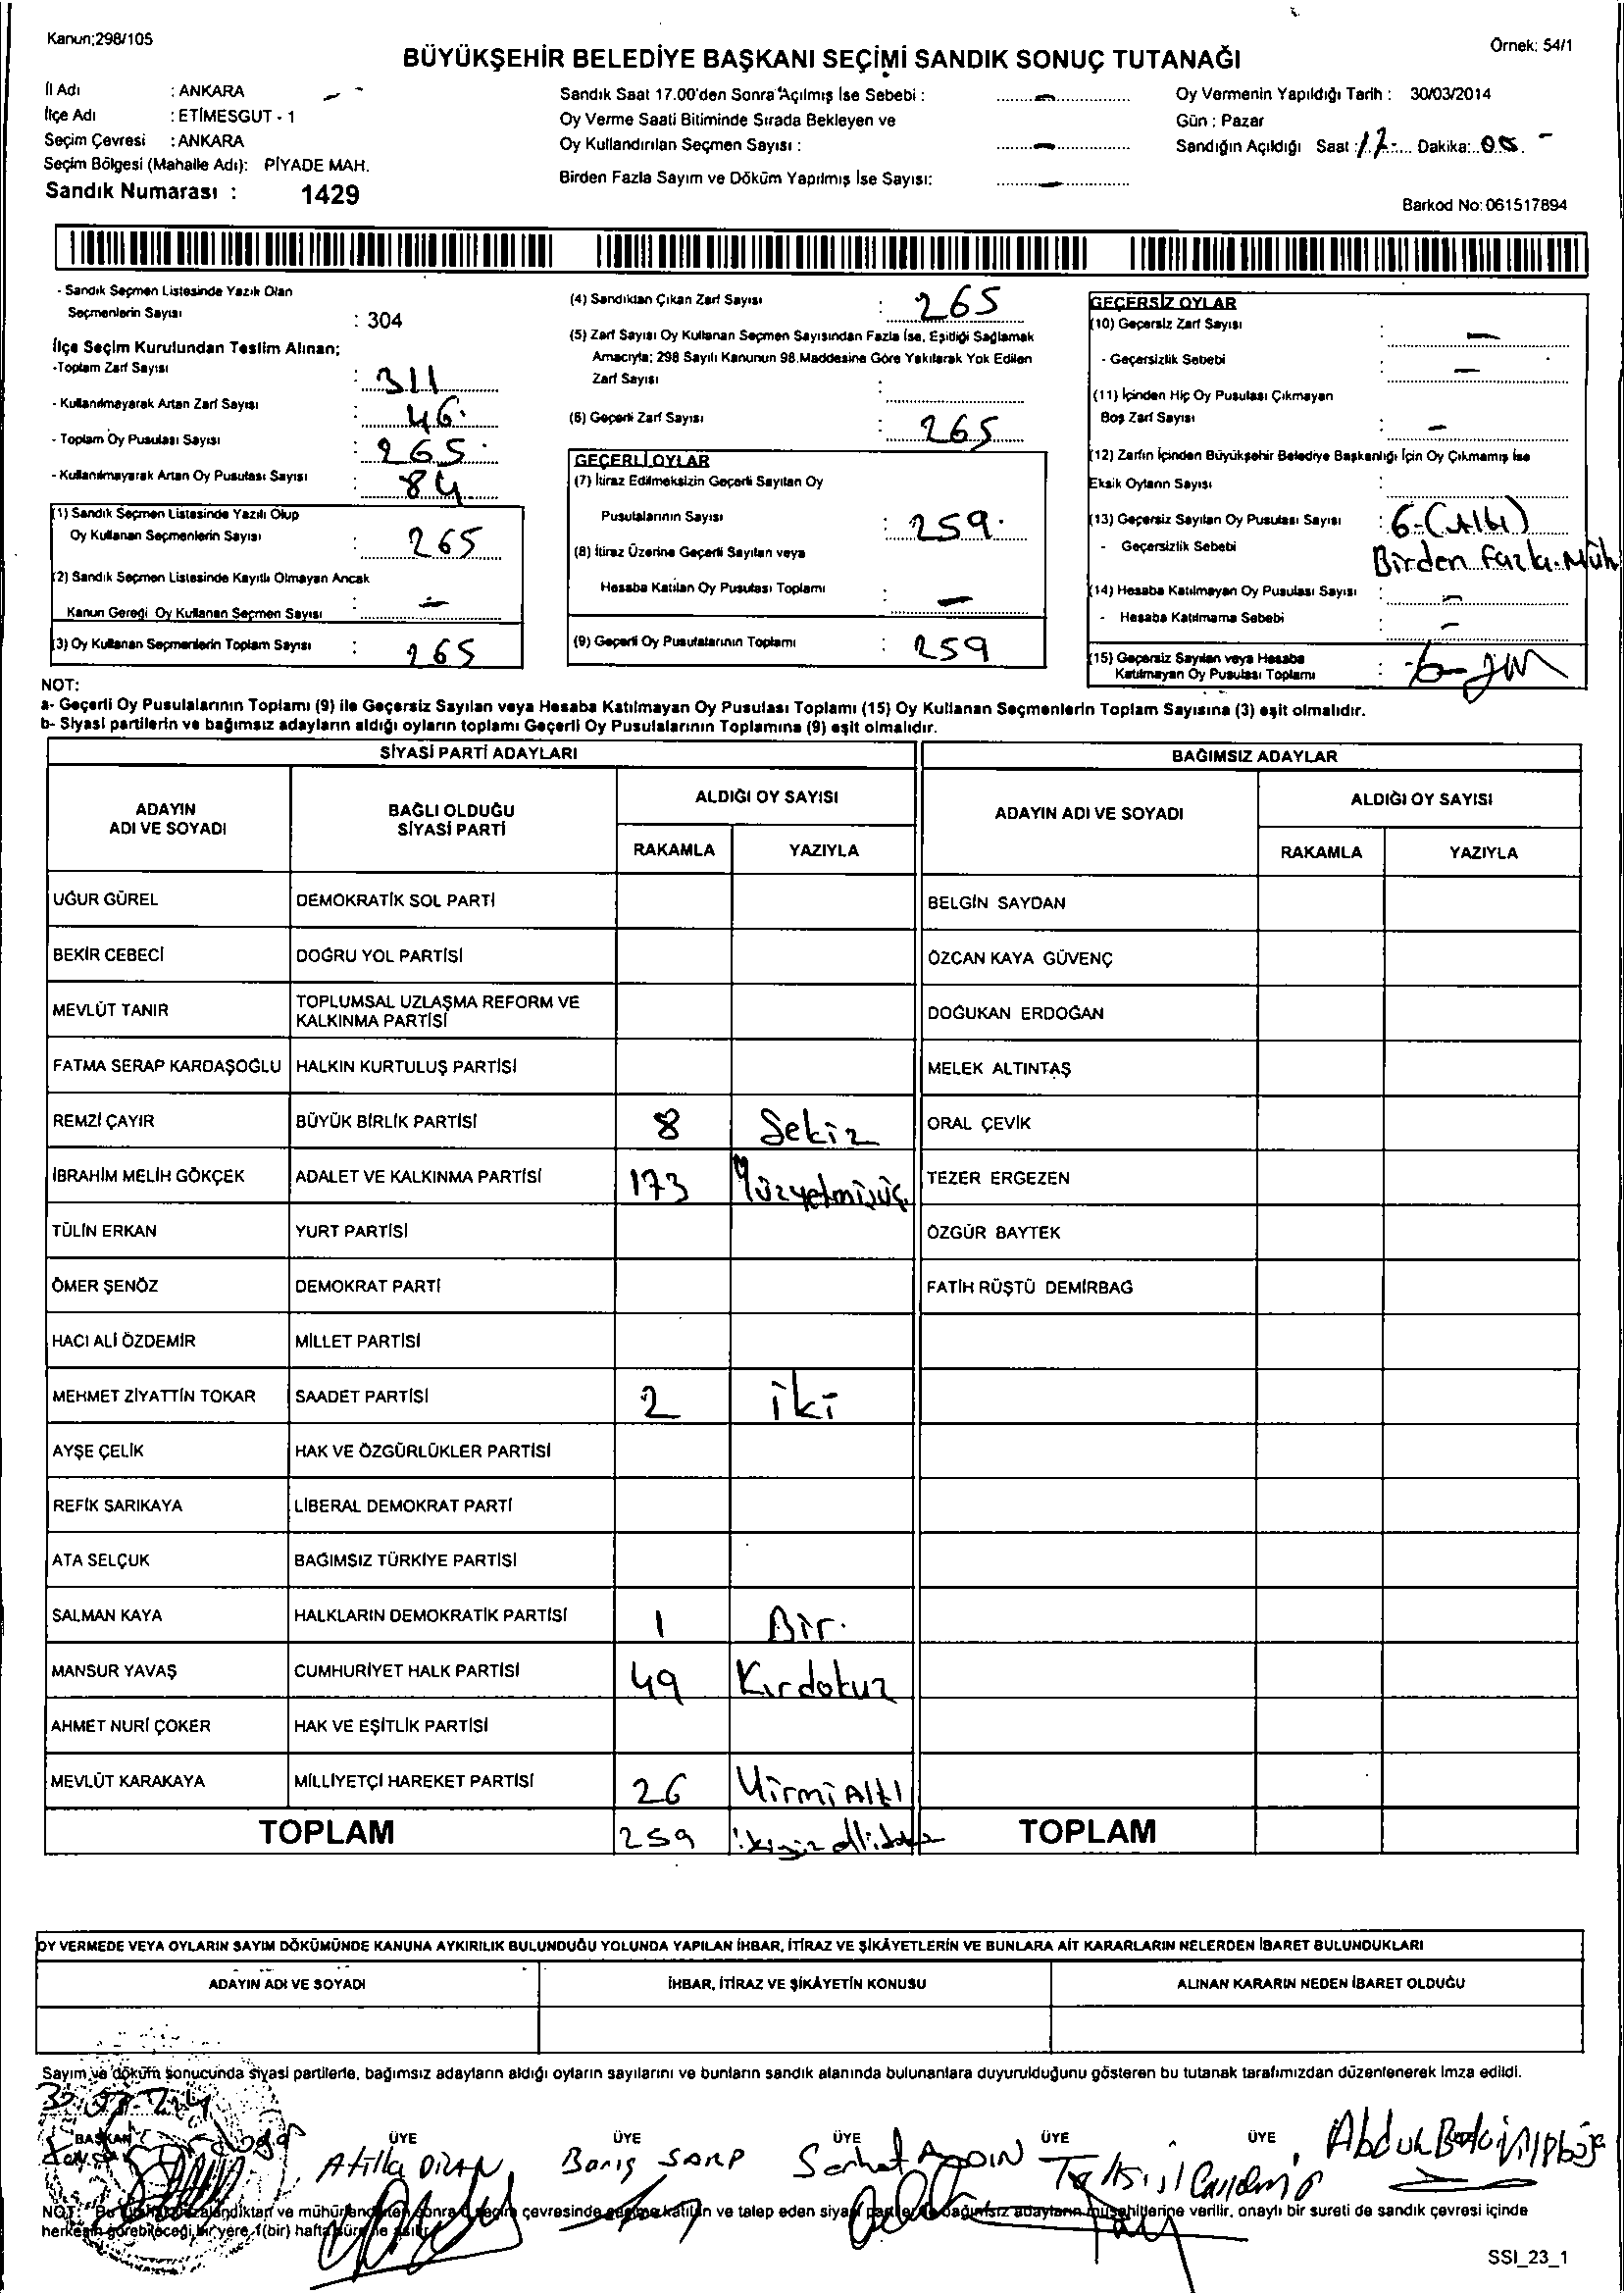 Kanun;298/105
Örnek: 54/1
BÜYÜKŞEHİR BELEDİYE BAŞKANI SEÇİMİ SANDIK SONUÇ TUTANAĞI
İl Adı : ANKARA
İlçe Adı : ETİMESGUT - 1
Seçim Çevresi : ANKARA
Seçim Bölgesi (Mahalle Adı): PİYADE MAH.
Sandık Numarası : 1429
Sandık Saat 17.00'den Sonra Açılmış İse Sebebi : –
Oy Verme Saati Bitiminde Sırada Bekleyen ve
Oy Kullandırılan Seçmen Sayısı : –
Birden Fazla Sayım ve Döküm Yapılmış İse Sayısı: –
Oy Vermenin Yapıldığı Tarih : 30/03/2014
Gün : Pazar
Sandığın Açıldığı Saat : 17 Dakika: 00
Barkod No: 061517894
- Sandık Seçmen Listesinde Yazılı Olan
Seçmenlerin Sayısı : 304
İlçe Seçim Kurulundan Teslim Alınan;
-Toplam Zarf Sayısı : 311
- Kullanılmayarak Artan Zarf Sayısı : 46
- Toplam Oy Pusulası Sayısı : 265
- Kullanılmayarak Artan Oy Pusulası Sayısı : 84
(1) Sandık Seçmen Listesinde Yazılı Olup
Oy Kullanan Seçmenlerin Sayısı : 265
(2) Sandık Seçmen Listesinde Kayıtlı Olmayan Ancak
Kanun Gereği Oy Kullanan Seçmen Sayısı : –
(3) Oy Kullanan Seçmenlerin Toplam Sayısı : 265
(4) Sandıktan Çıkan Zarf Sayısı : 265
(5) Zarf Sayısı Oy Kullanan Seçmen Sayısından Fazla İse, Eşitliği Sağlamak
Amacıyla; 298 Sayılı Kanunun 98.Maddesine Göre Yakılarak Yok Edilen
Zarf Sayısı :
(6) Geçerli Zarf Sayısı : 265
GEÇERLİ OYLAR
(7) İtiraz Edilmeksizin Geçerli Sayılan Oy
Pusulalarının Sayısı : 259
(8) İtiraz Üzerine Geçerli Sayılan veya
Hesaba Katılan Oy Pusulası Toplamı : –
(9) Geçerli Oy Pusulalarının Toplamı : 259
GEÇERSİZ OYLAR
(10) Geçersiz Zarf Sayısı : –
- Geçersizlik Sebebi : –
(11) İçinden Hiç Oy Pusulası Çıkmayan
Boş Zarf Sayısı : –
(12) Zarfın İçinden Büyükşehir Belediye Başkanlığı İçin Oy Çıkmamış İse
Eksik Oyların Sayısı :
(13) Geçersiz Sayılan Oy Pusulası Sayısı : 6-(Altı)
- Geçersizlik Sebebi Birden Fazla Müh
(14) Hesaba Katılmayan Oy Pusulası Sayısı : –
- Hesaba Katılmama Sebebi : –
(15) Geçersiz Sayılan veya Hesaba
Katılmayan Oy Pusulası Toplamı : -6-
NOT:
a- Geçerli Oy Pusulalarının Toplamı (9) ile Geçersiz Sayılan veya Hesaba Katılmayan Oy Pusulası Toplamı (15) Oy Kullanan Seçmenlerin Toplam Sayısına (3) eşit olmalıdır.
b- Siyasi partilerin ve bağımsız adayların aldığı oyların toplamı Geçerli Oy Pusulalarının Toplamına (9) eşit olmalıdır.
SİYASİ PARTİ ADAYLARI
BAĞIMSIZ ADAYLAR
ADAYIN ADI VE SOYADI
BAĞLI OLDUĞU SİYASİ PARTİ
ALDIĞI OY SAYISI
RAKAMLA YAZIYLA
ADAYIN ADI VE SOYADI
ALDIĞI OY SAYISI
RAKAMLA YAZIYLA
UĞUR GÜREL DEMOKRATİK SOL PARTİ BELGİN SAYDAN
BEKİR CEBECİ DOĞRU YOL PARTİSİ ÖZCAN KAYA GÜVENÇ
MEVLÜT TANIR TOPLUMSAL UZLAŞMA REFORM VE KALKINMA PARTİSİ DOĞUKAN ERDOĞAN
FATMA SERAP KARDAŞOĞLU HALKIN KURTULUŞ PARTİSİ MELEK ALTINTAŞ
REMZİ ÇAYIR BÜYÜK BİRLİK PARTİSİ 8 Sekiz ORAL ÇEVİK
İBRAHİM MELİH GÖKÇEK ADALET VE KALKINMA PARTİSİ 173 Yüzyetmişüç TEZER ERGEZEN
TÜLİN ERKAN YURT PARTİSİ ÖZGÜR BAYTEK
ÖMER ŞENÖZ DEMOKRAT PARTİ FATİH RÜŞTÜ DEMİRBAĞ
HACI ALİ ÖZDEMİR MİLLET PARTİSİ
MEHMET ZİYATTİN TOKAR SAADET PARTİSİ 2 iki
AYŞE ÇELİK HAK VE ÖZGÜRLÜKLER PARTİSİ
REFİK SARIKAYA LİBERAL DEMOKRAT PARTİ
ATA SELÇUK BAĞIMSIZ TÜRKİYE PARTİSİ
SALMAN KAYA HALKLARIN DEMOKRATİK PARTİSİ 1 Bir.
MANSUR YAVAŞ CUMHURİYET HALK PARTİSİ 49 Kırdokuz
AHMET NURİ ÇOKER HAK VE EŞİTLİK PARTİSİ
MEVLÜT KARAKAYA MİLLİYETÇİ HAREKET PARTİSİ 26 YirmiAltı
TOPLAM 259 TOPLAM
OY VERMEDE VEYA OYLARIN SAYIM DÖKÜMÜNDE KANUNA AYKIRILIK BULUNDUĞU YOLUNDA YAPILAN İHBAR, İTİRAZ VE ŞİKÂYETLERİN VE BUNLARA AİT KARARLARIN NELERDEN İBARET BULUNDUKLARI
ADAYIN ADI VE SOYADI İHBAR, İTİRAZ VE ŞİKÂYETİN KONUSU ALINAN KARARIN NEDEN İBARET OLDUĞU
Sayım ve döküm sonucunda siyasi partilerle, bağımsız adayların aldığı oyların sayılarını ve bunların sandık alanında bulunanlara duyurulduğunu gösteren bu tutanak tarafımızdan düzenlenerek imza edildi.
BAŞKAN ÜYE ÜYE ÜYE ÜYE ÜYE
Atilla Barış SARP Serhat AYDIN
NOT: Bu çevresinde katılan ve talep eden siyasi verilir, onaylı bir sureti de sandık çevresi içinde
herkesin görebileceği bir yere 1(bir) hafta süre ile asılır.
SSI_23_1